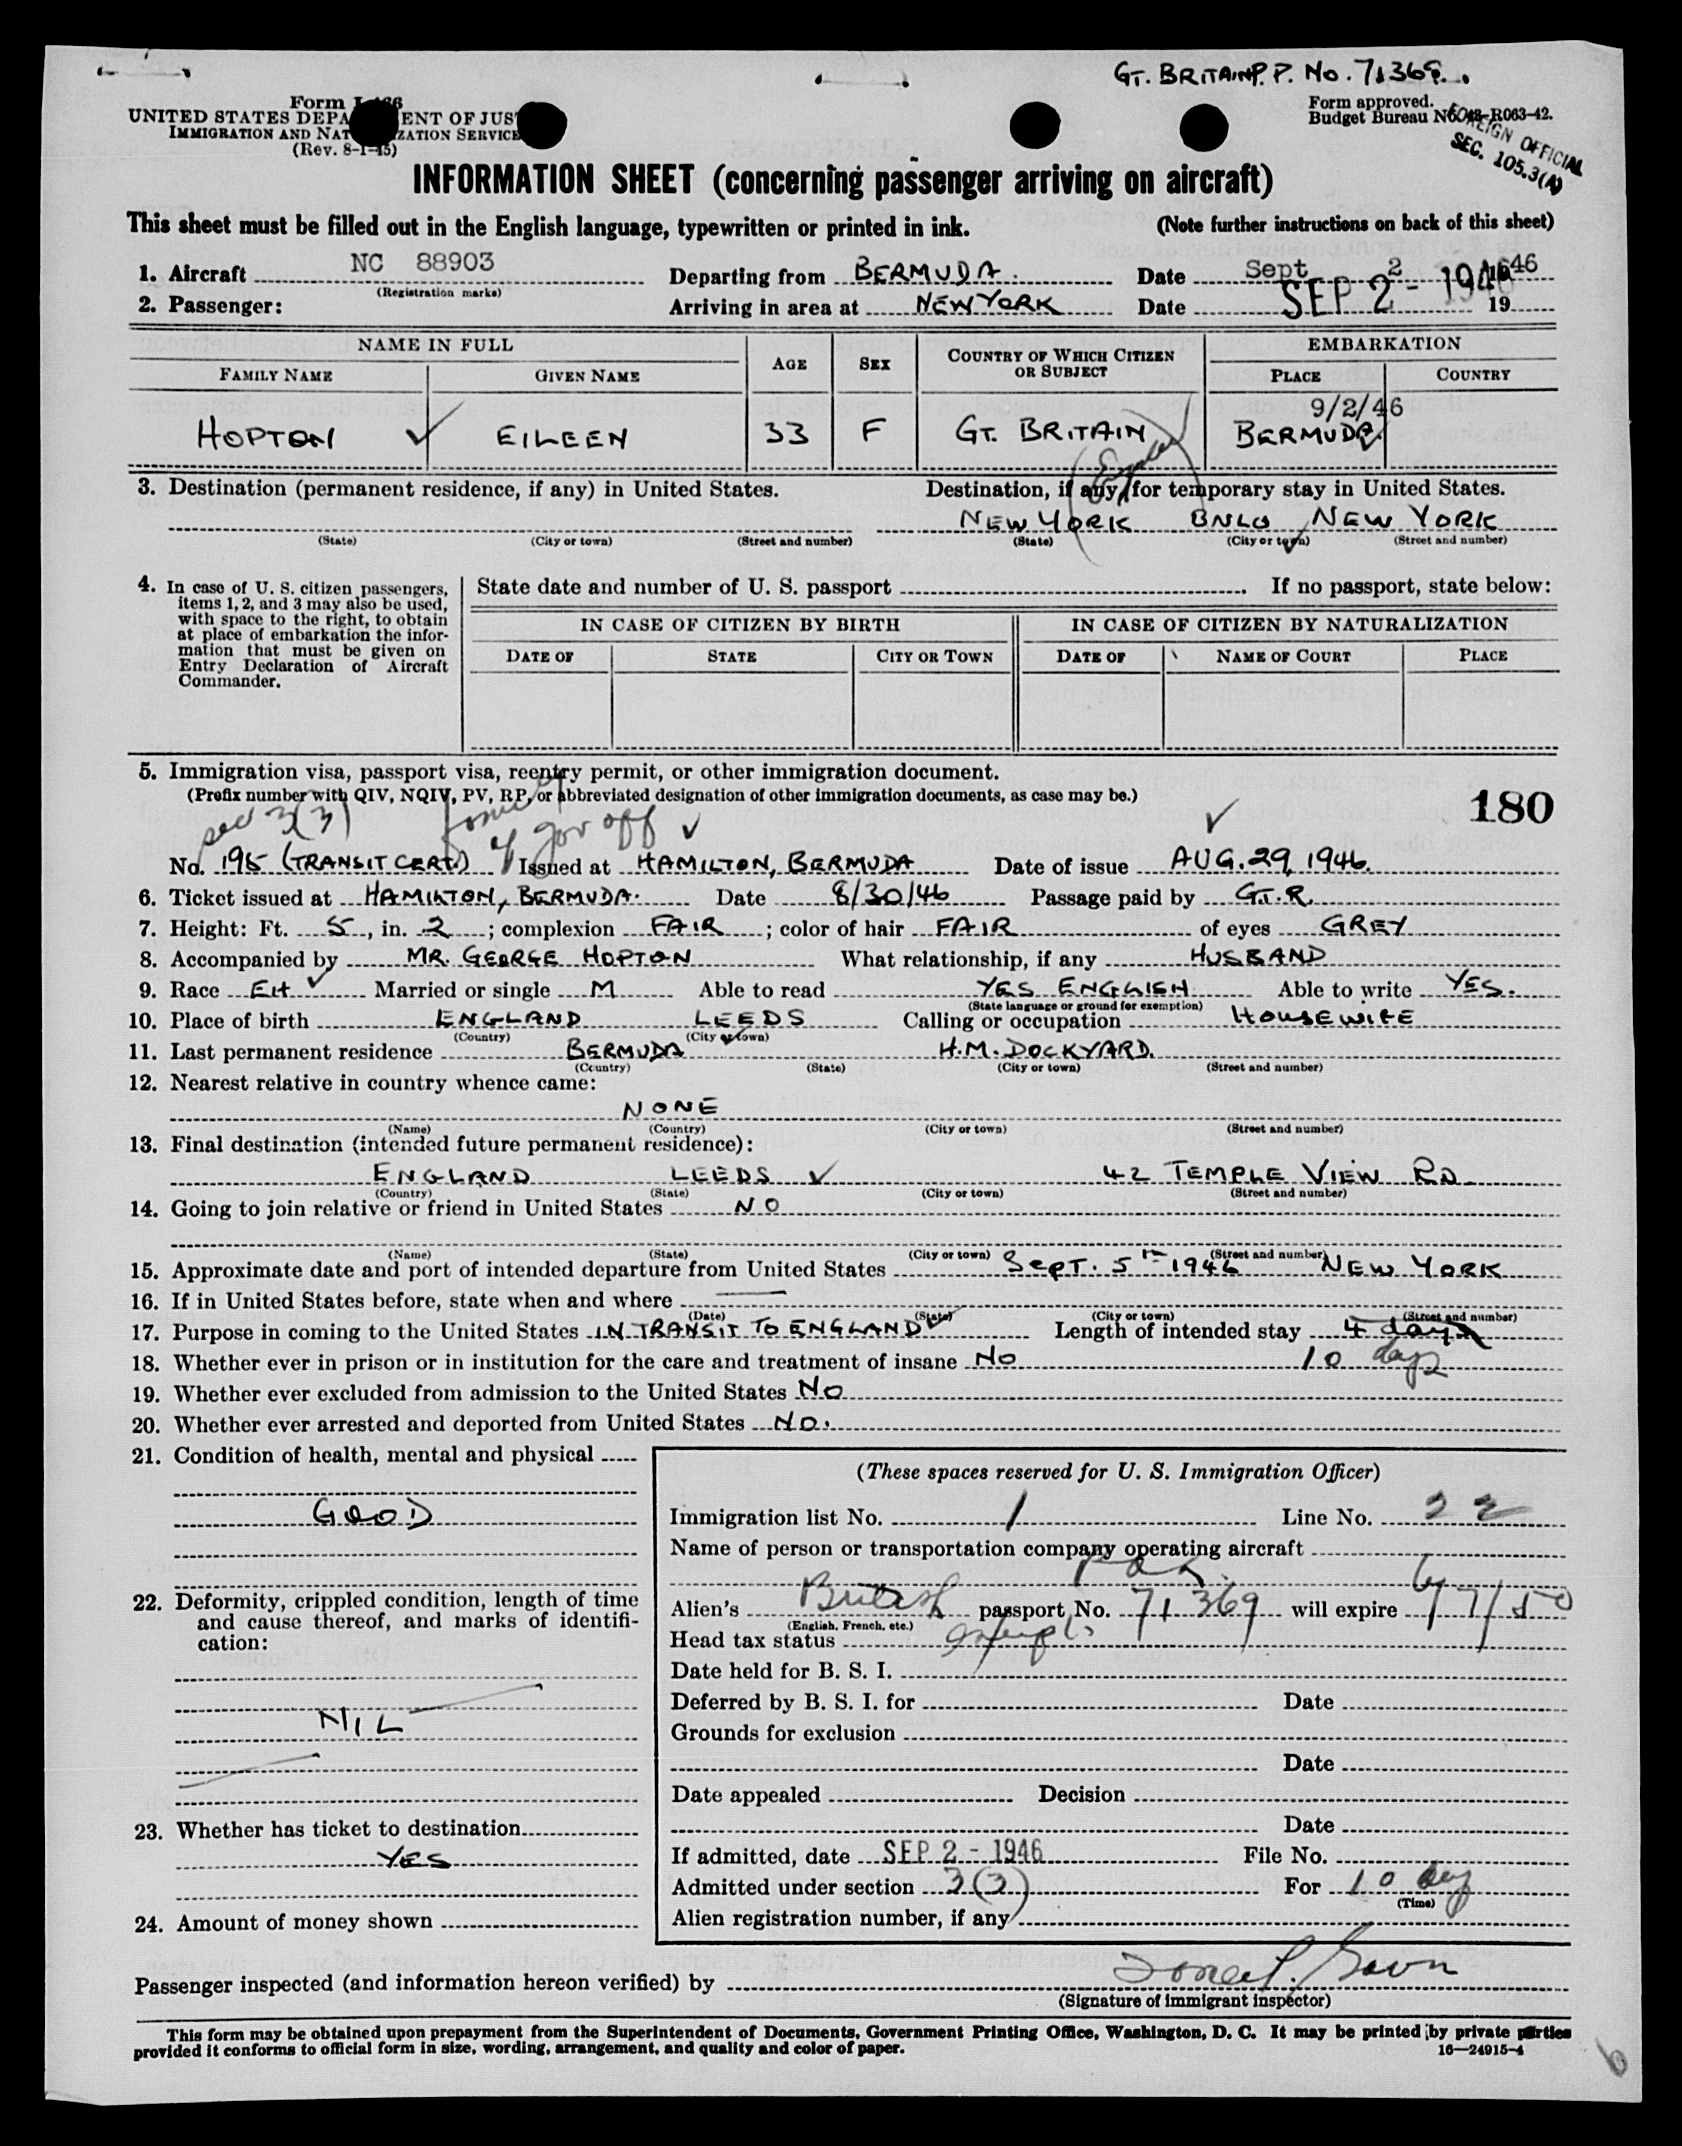 GT. BRITAIN P.P. No. 71369.
Form I-466
UNITED STATES DEPARTMENT OF JUSTICE
IMMIGRATION AND NATURALIZATION SERVICE
(Rev. 8-1-45)
Form approved.
Budget Bureau No. 43-R063-42.
FOREIGN OFFICIAL
SEC. 105.3(A)
INFORMATION SHEET (concerning passenger arriving on aircraft)
This sheet must be filled out in the English language, typewritten or printed in ink. (Note further instructions on back of this sheet)
1. Aircraft NC 88903 Departing from BERMUDA. Date Sept 2 1946
(Registration marks)
2. Passenger: Arriving in area at NEW YORK Date SEP 2 - 1946 19
NAME IN FULL EMBARKATION
FAMILY NAME GIVEN NAME AGE SEX COUNTRY OF WHICH CITIZEN OR SUBJECT PLACE COUNTRY
9/2/46
HOPTON EILEEN 33 F GT. BRITAIN BERMUDA.
3. Destination (permanent residence, if any) in United States. Destination, if any, for temporary stay in United States.
NEW YORK BNLO NEW YORK
(State) (City or town) (Street and number) (State) (City or town) (Street and number)
4. In case of U. S. citizen passengers, items 1, 2, and 3 may also be used, with space to the right, to obtain at place of embarkation the information that must be given on Entry Declaration of Aircraft Commander.
State date and number of U. S. passport If no passport, state below:
IN CASE OF CITIZEN BY BIRTH IN CASE OF CITIZEN BY NATURALIZATION
DATE OF STATE CITY OR TOWN DATE OF NAME OF COURT PLACE
5. Immigration visa, passport visa, reentry permit, or other immigration document.
(Prefix number with QIV, NQIV, PV, RP, or abbreviated designation of other immigration documents, as case may be.) 180
sec 3(3) family of gov off
No. 195 (TRANSIT CERT.) Issued at HAMILTON, BERMUDA Date of issue AUG. 29, 1946.
6. Ticket issued at HAMILTON, BERMUDA. Date 8/30/46 Passage paid by G.T.R.
7. Height: Ft. 5, in. 2; complexion FAIR; color of hair FAIR of eyes GREY
8. Accompanied by MR. GEORGE HOPTON What relationship, if any HUSBAND
9. Race EH Married or single M Able to read YES ENGLISH Able to write YES.
(State language or ground for exemption)
10. Place of birth ENGLAND LEEDS Calling or occupation HOUSEWIFE
(Country) (City or town)
11. Last permanent residence BERMUDA H.M. DOCKYARD.
(Country) (State) (City or town) (Street and number)
12. Nearest relative in country whence came:
NONE
(Name) (Country) (City or town) (Street and number)
13. Final destination (intended future permanent residence):
ENGLAND LEEDS 42 TEMPLE VIEW RD
(Country) (State) (City or town) (Street and number)
14. Going to join relative or friend in United States NO
(Name) (State) (City or town) (Street and number)
15. Approximate date and port of intended departure from United States SEPT. 5th 1946 NEW YORK
16. If in United States before, state when and where
(Date) (State) (City or town) (Street and number)
17. Purpose in coming to the United States IN TRANSIT TO ENGLAND Length of intended stay 4 days
18. Whether ever in prison or in institution for the care and treatment of insane No 10 days
19. Whether ever excluded from admission to the United States No
20. Whether ever arrested and deported from United States No.
21. Condition of health, mental and physical
GOOD
22. Deformity, crippled condition, length of time and cause thereof, and marks of identification:
NIL
23. Whether has ticket to destination
YES
24. Amount of money shown
(These spaces reserved for U. S. Immigration Officer)
Immigration list No. 1 Line No. 22
Name of person or transportation company operating aircraft
Alien's British passport No. 71369 will expire 6/7/50
(English, French, etc.)
Head tax status exempt
Date held for B. S. I.
Deferred by B. S. I. for Date
Grounds for exclusion
Date
Date appealed Decision
Date
If admitted, date SEP 2 - 1946 File No.
Admitted under section 3(3) For 10 day
(Time)
Alien registration number, if any
Passenger inspected (and information hereon verified) by
(Signature of immigrant inspector)
This form may be obtained upon prepayment from the Superintendent of Documents, Government Printing Office, Washington, D. C. It may be printed by private parties
provided it conforms to official form in size, wording, arrangement, and quality and color of paper. 16—24915-4
6